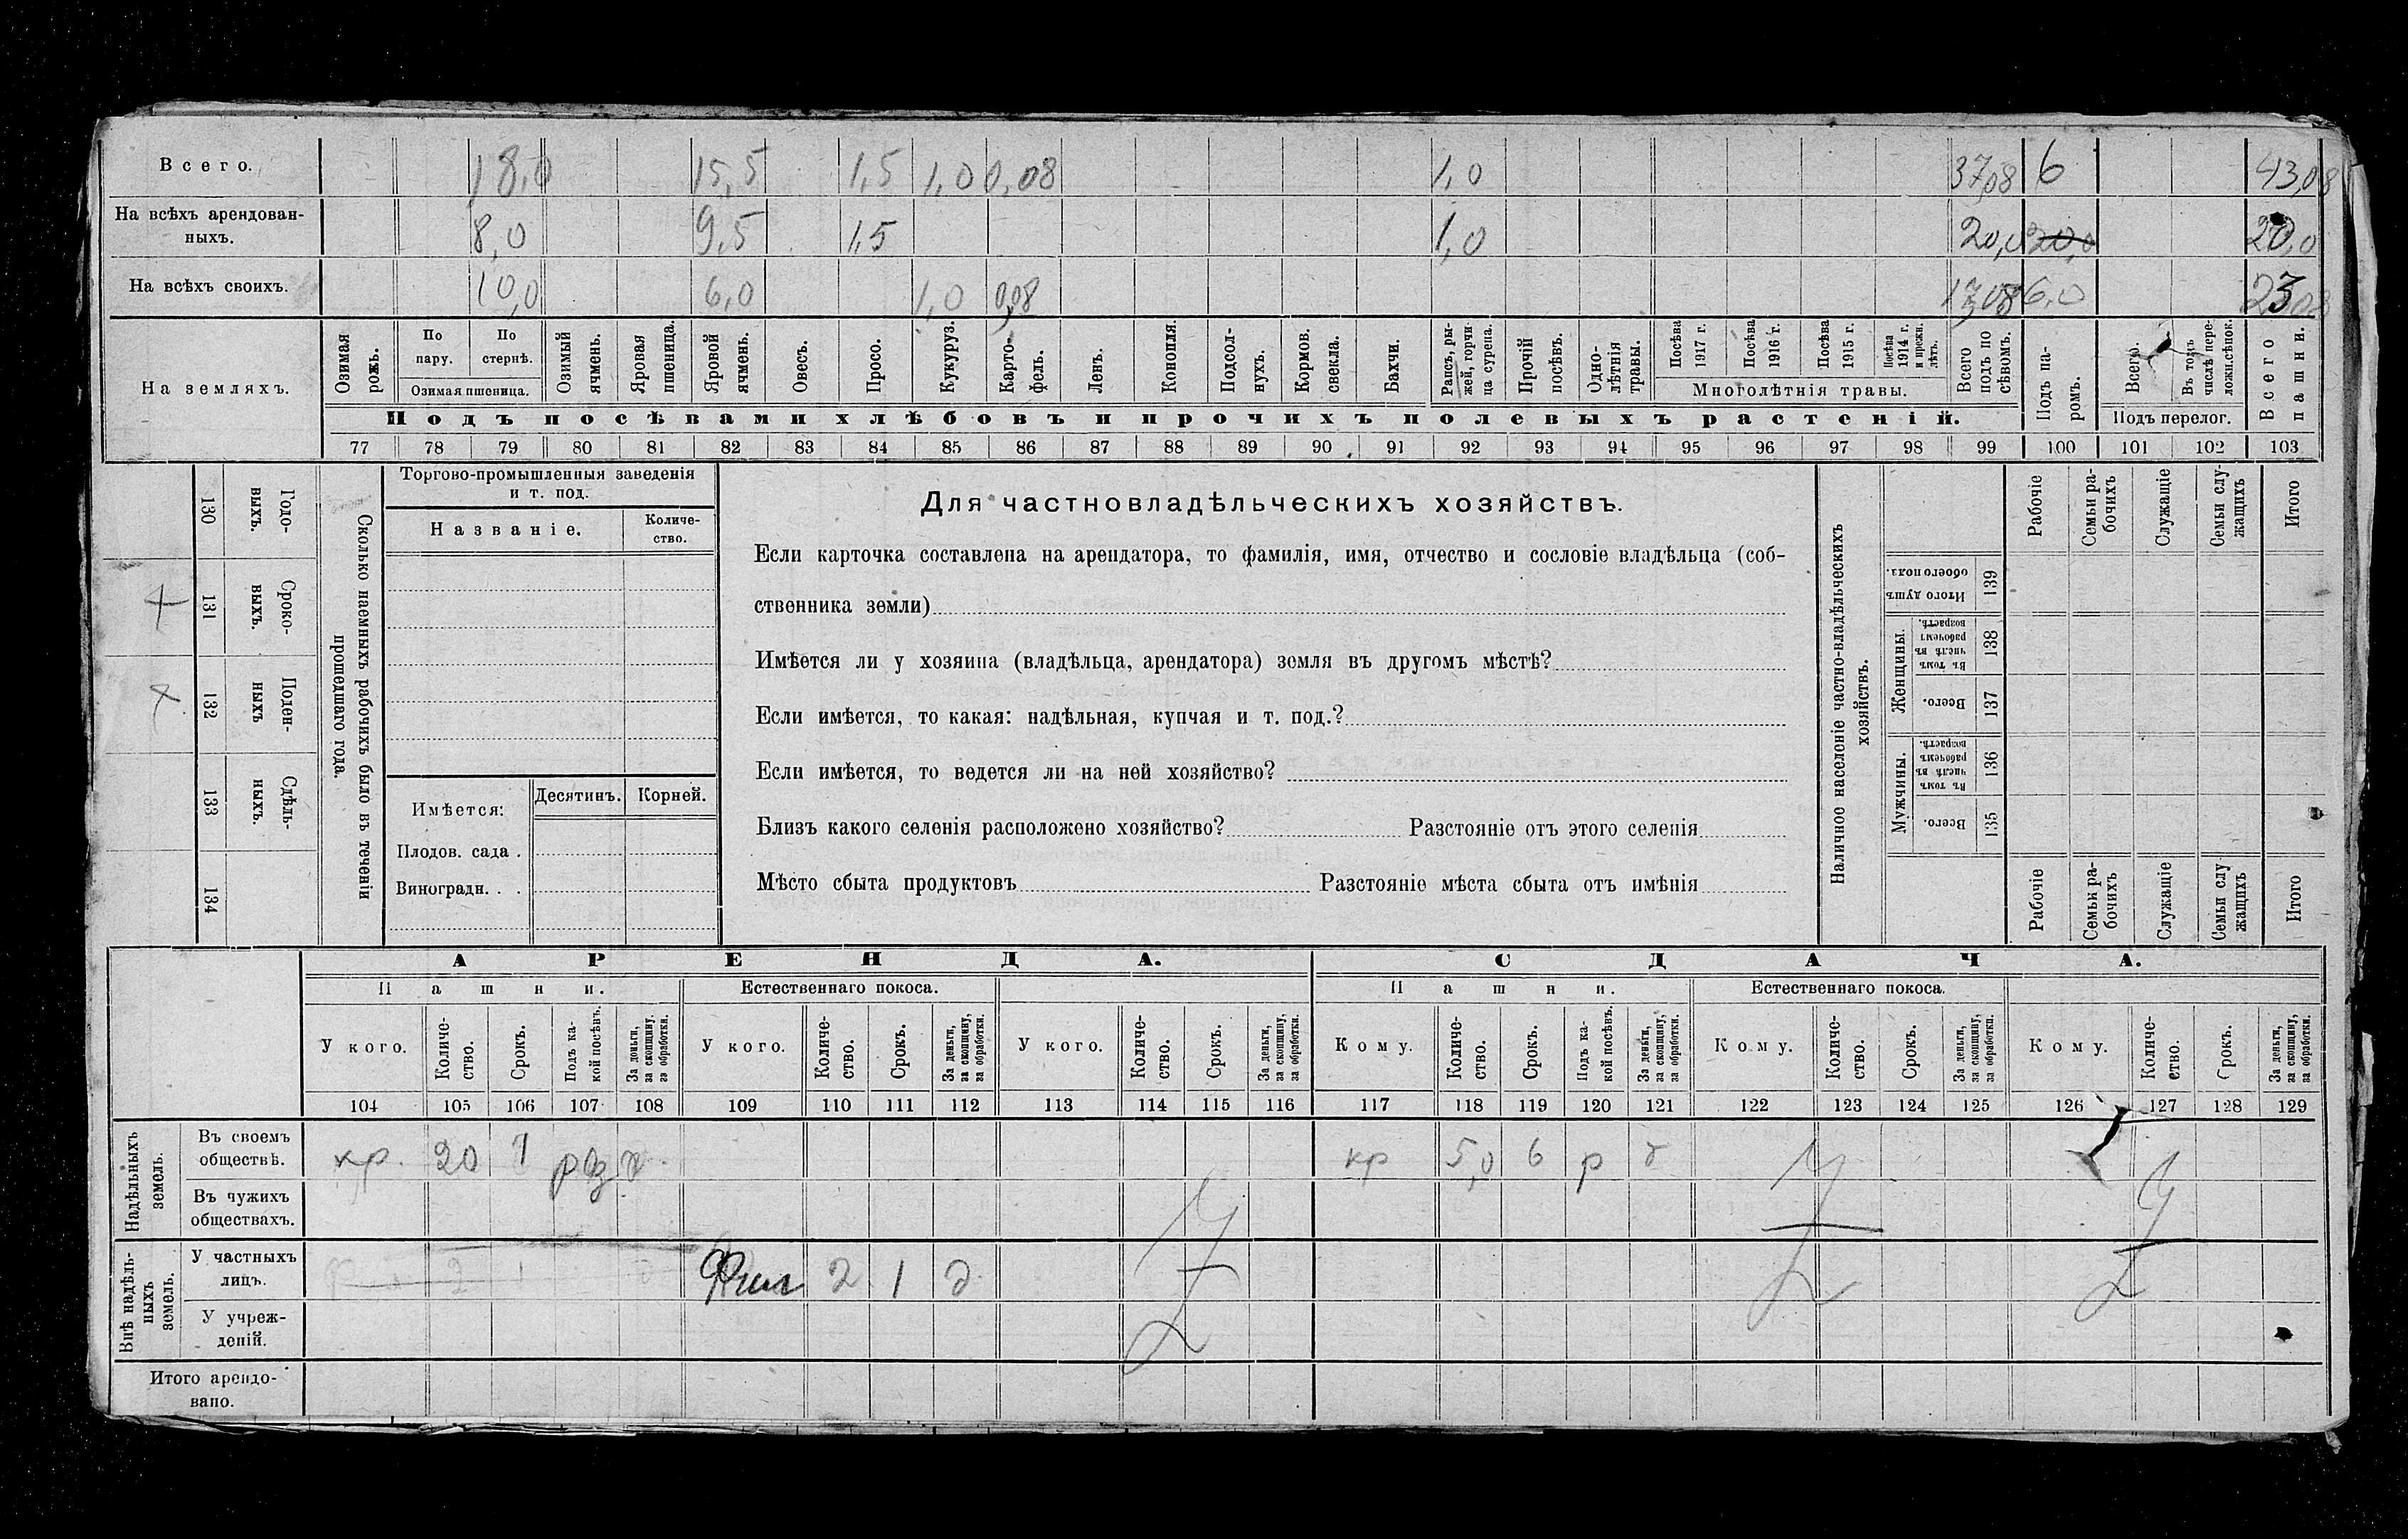 Всего. 18,0 15,5 1,5 1,0 0,08 1,0 37,08 6 43,08
На всѣхъ арендован-
ныхъ. 8,0 9,5 1,5 1,0 20,0 20,0 20,0
На всѣхъ своихъ. 10,0 6,0 1,0 0,08 17,08 6,0 23,08
На земляхъ.
Озимая рожь.
По пару.
По стернѣ.
Озимая пшеница.
Озимый ячмень.
Яровая пшеница.
Яровой ячмень.
Овесъ.
Просо.
Кукуруз.
Карто-
фель.
Ленъ.
Конопля.
Подсол-
нухъ.
Кормов. свекла.
Бахчи.
Рапсъ, ры-
жей, горчи-
ца сурепа.
Прочій посѣвъ.
Одно-
лѣтнія травы.
Посѣва 1917 г.
Посѣва 1916 г.
Посѣва 1915 г.
Посѣва 1914 г. и прежн. лѣтъ.
Многолѣтнія травы.
Всего подъ по
сѣвомъ.
Подъ па-
ромъ.
Всего.
Въ томъ числѣ пере-
ложн.сѣнок.
Подъ перелог.
Всего пашни.
Подъ посѣвами хлѣбовъ и прочихъ полевыхъ растеній.
77 78 79 80 81 82 83 84 85 86 87 88 89 90 91 92 93 94 95 96 97 98 99 100 101 102 103
Сколько наемныхъ рабочихъ было въ теченіи
прошедшаго года.
Годо-
выхъ.
130
Сроко-
выхъ.
131
Поден-
ныхъ
132
Сдѣль-
ныхъ.
133
134
Торгово-промышленныя заведенія
и т. под.
Названіе.
Количе-
ство.
Имѣется:
Десятинъ.
Корней.
Плодов. сада .
Виноградн. . .
Для частновладѣльческихъ хозяйствъ.
Если карточка составлена на арендатора, то фамилія, имя, отчество и сословіе владѣльца (соб-
ственника земли)
Имѣется ли у хозяина (владѣльца, арендатора) земля въ другомъ мѣстѣ?
Если имѣется, то какая: надѣльная, купчая и т. под.?
Если имѣется, то ведется ли на ней хозяйство?
Близъ какого селенія расположено хозяйство? Разстояніе отъ этого селенія
Мѣсто сбыта продуктовъ Разстояніе мѣста сбыта отъ имѣнія
Наличное населеніе частно-владѣльческихъ
хозяйствъ.
Рабочіе
Семьи ра-
бочихъ
Служащіе
Семьи слу-
жащихъ
Итого
Итого душъ обоего пола.
139
Женщины.
Въ томъ числѣ въ рабочемъ возрастѣ.
138
Всего.
137
Мужчины.
Въ томъ числѣ въ рабочемъ возрастѣ.
136
Всего.
135
Рабочіе
Семьи ра-
бочихъ
Служащіе
Семьи слу
жащихъ
Итого
АРЕНДА. СДАЧА.
Пашни. Естественнаго покоса. Пашни. Естественнаго покоса.
У кого.
Количе-
ство.
Срокъ.
Подъ ка-
кой посѣвъ.
За деньги,
за скопщину,
за обработки.
У кого.
Количе-
ство.
Срокъ.
За деньги,
за скопщину,
за обработки.
У кого.
Количе-
ство.
Срокъ.
За деньги,
за скопщину,
за обработки.
Кому.
Количе-
ство.
Срокъ.
Подъ ка-
кой посѣвъ.
За деньги,
за скопщину,
за обработки.
Кому.
Количе-
ство.
Срокъ.
За деньги,
за скопщину,
за обработки.
Кому.
Количе-
ство.
Срокъ.
За деньги,
за скопщину,
за обработки.
104 105 106 107 108 109 110 111 112 113 114 115 116 117 118 119 120 121 122 123 124 125 126 127 128 129
Надѣльныхъ
земель.
Въ своемъ
обществѣ. кр. 20 1 кр 5,0 6 р д
Въ чужихъ
обществахъ.
Внѣ надѣль-
ныхъ
земель.
У частныхъ
лицъ. 2 1 д
У учреж-
деній.
Итого арендо-
вано.